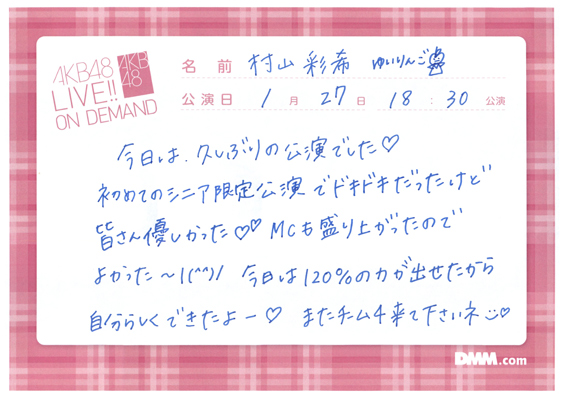 AKB48
LIVE!!
ON DEMAND
AKB
48
名前 村山彩希 ゆいりんご
公演日 1月27日 18:30公演
今日は、久しぶりの公演でした♡
初めてのシニア限定公演でドキドキだったけど
皆さん優しかった♡♡ MCも盛り上がったので
よかった〜\(^^)/ 今日は120%の力が出せたから
自分らしくできたよー♡ またチーム4来て下さいネ♡
DMM.com